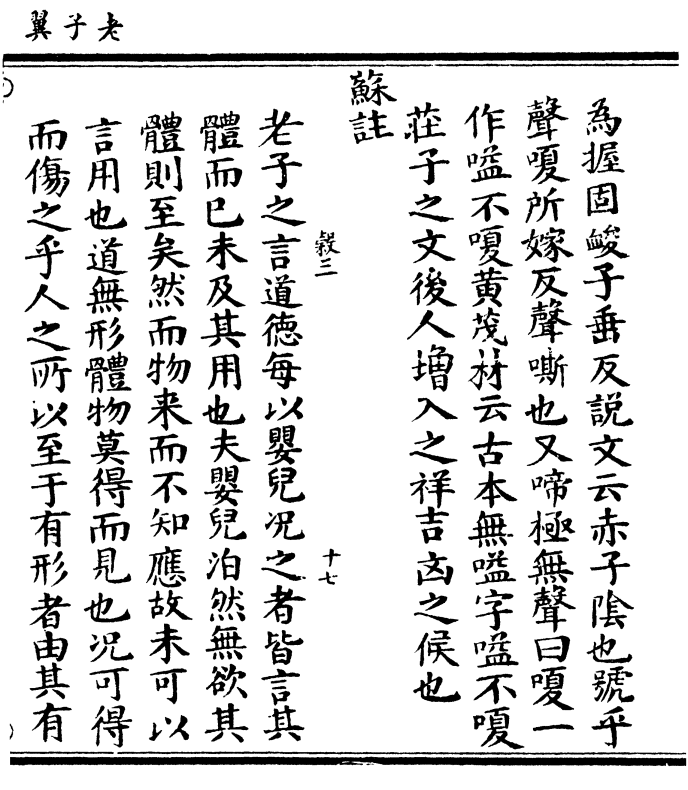 老子翼
為握固㕙子垂反説文云赤子陰也號乎
聲嗄所嫁反聲嘶也又啼極無聲曰嗄一
作嗌不嗄黃茂材云古本無嗌字嗌不嗄
莊子之文後人増入之祥吉凶之候也
蘇註
穀三
十七
老子之言道徳每以嬰兒况之者皆言其
體而已未及其用也夫嬰兒泊然無欲其
體則至矣然而物来而不知應故未可以
言用也道無形體物莫得而見也况可得
而傷之乎人之所以至于有形者由其有